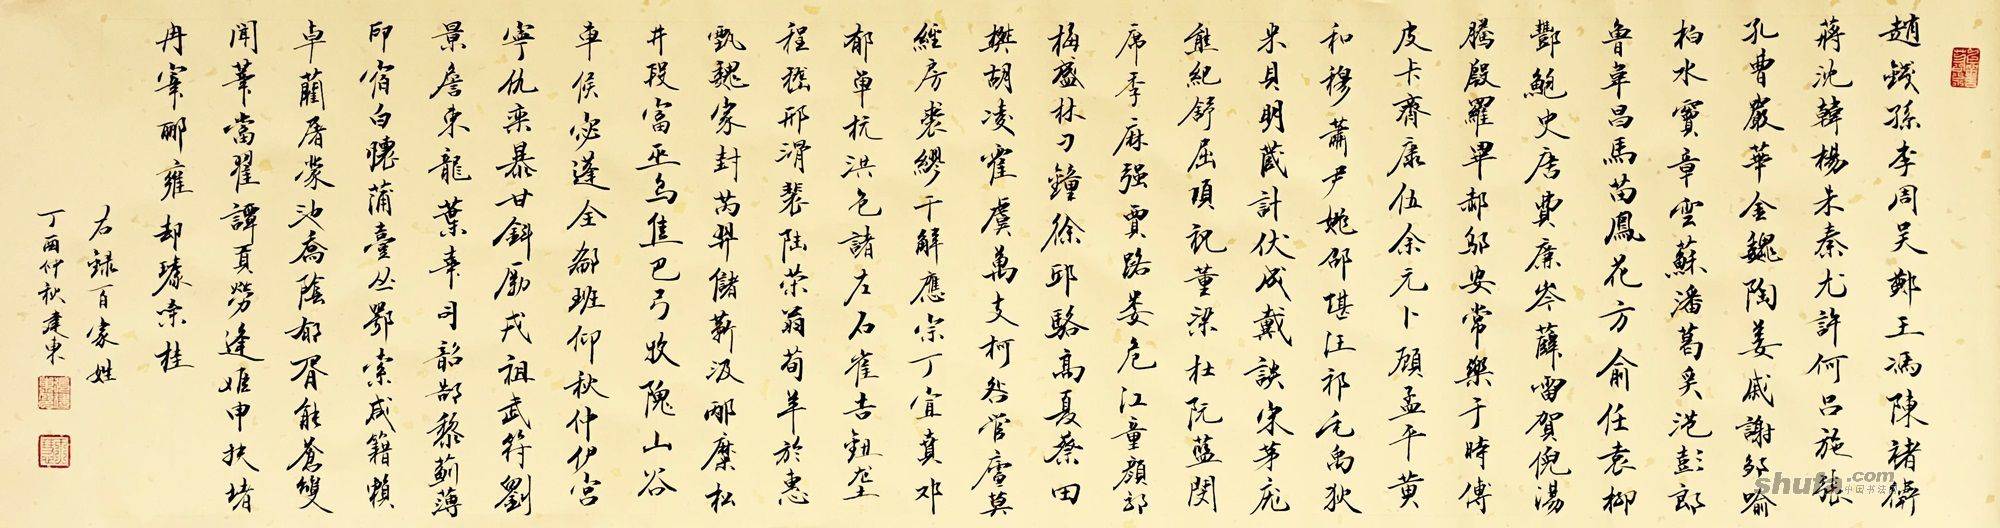 趙錢孫李周吳鄭王馮陳褚衛
蔣沈韓楊朱秦尤許何呂施張
孔曹嚴華金魏陶姜戚謝鄒喻
柏水竇章雲蘇潘葛奚范彭郎
魯韋昌馬苗鳳花方俞任袁柳
酆鮑史唐費廉岑薛雷賀倪湯
滕殷羅畢郝鄔安常樂于時傅
皮卡齊康伍余元卜顧孟平黃
和穆蕭尹姚邵堪汪祁毛禹狄
米貝明臧計伏成戴談宋茅庞
熊紀舒屈項祝董梁杜阮藍閔
席季麻强賈路娄危江童顏郭
梅盛林刁鐘徐邱駱高夏蔡田
樊胡凌霍虞萬支柯昝管盧莫
經房裘繆干解應宗丁宣賁邓
郁單杭洪包諸左石崔吉鈕龚
程嵇邢滑裴陸荣翁荀羊於惠
甄魏家封芮羿儲靳汲邴糜松
井段富巫烏焦巴弓牧隗山谷
車侯宓蓬全郗班仰秋仲伊宮
寧仇栾暴甘斜厲戎祖武符劉
景詹束龍葉幸司韶郜黎薊薄
印宿白懷蒲臺丛鄂索咸籍賴
卓藺屠蒙池喬陰郁胥能蒼雙
聞莘當翟譚貢勞逄姬申扶堵
冉宰酈雍却璩桑桂
右録百家姓
丁酉仲秋建東
shufa.com
中国书法网